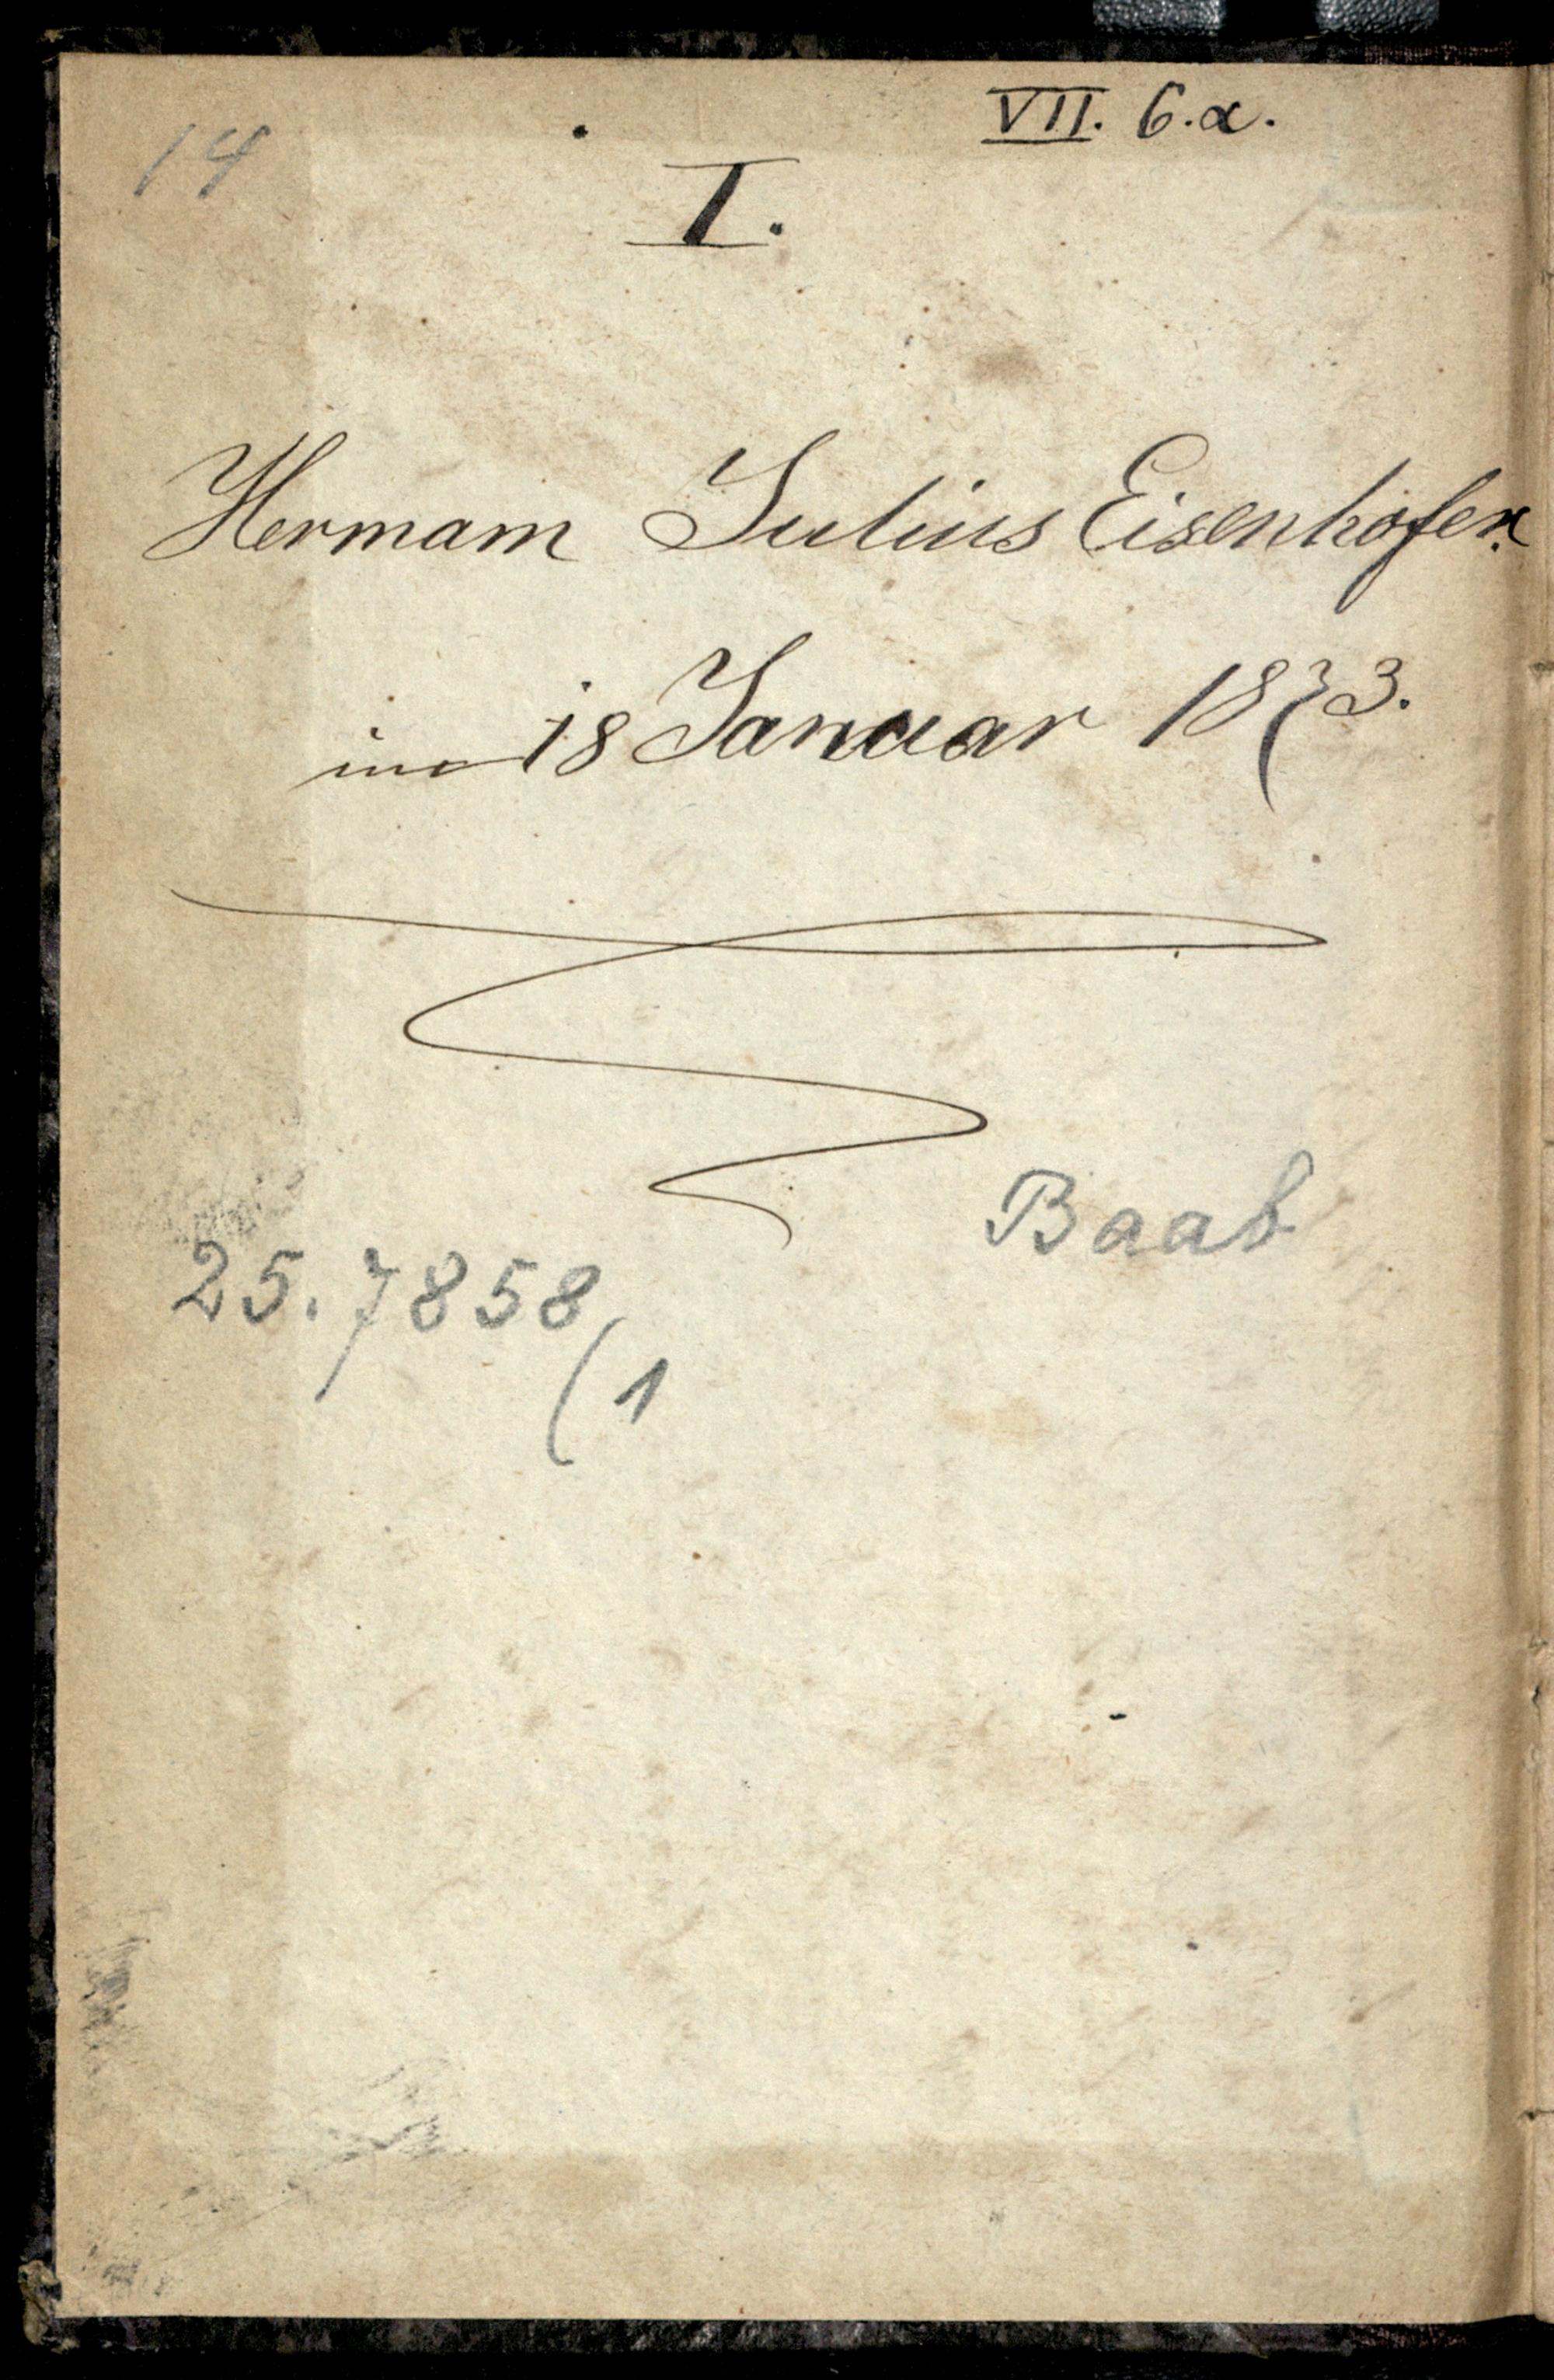 VII. 6.α.
14
I.
Hermann Julius Eisenhofer.
im 18 Januar 1873.
Baab
25.7858
(1